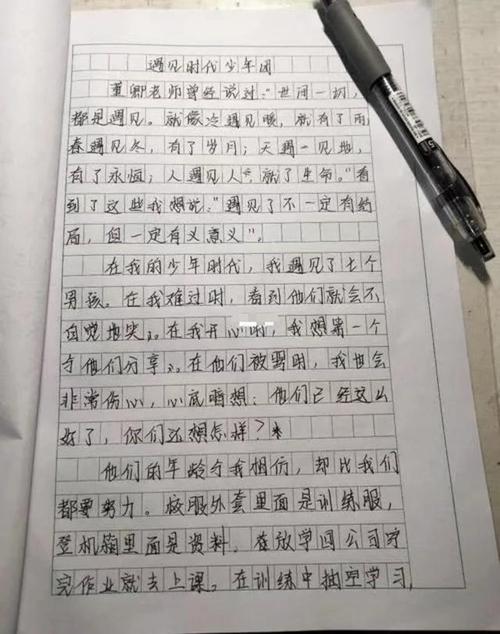 遇见时代少年团
董卿老师曾经说过:“世间一切,
都是遇见。就像冷遇见暖,就有了雨
春遇见冬,有了岁月;天遇一见地,
有了永恒;人遇见人,就了生命。”看
到了这些我想说:“遇见了不一定有结
局,但一定有义意义”。
在我的少年时代,我遇见了七个
男孩。在我难过时,看到他们就会不
自觉地笑。在我开心时,我想第一个
与他们分享。在他们被骂时,我也会
非常伤心,心底暗想:他们已经这么
好了,你们还想怎样?
他们的年龄与我相仿,却比我们
都要努力。校服外套里面是训练服,
登机箱里面是资料。在放学回公司写
完作业就去上课。在训练中抽空学习,